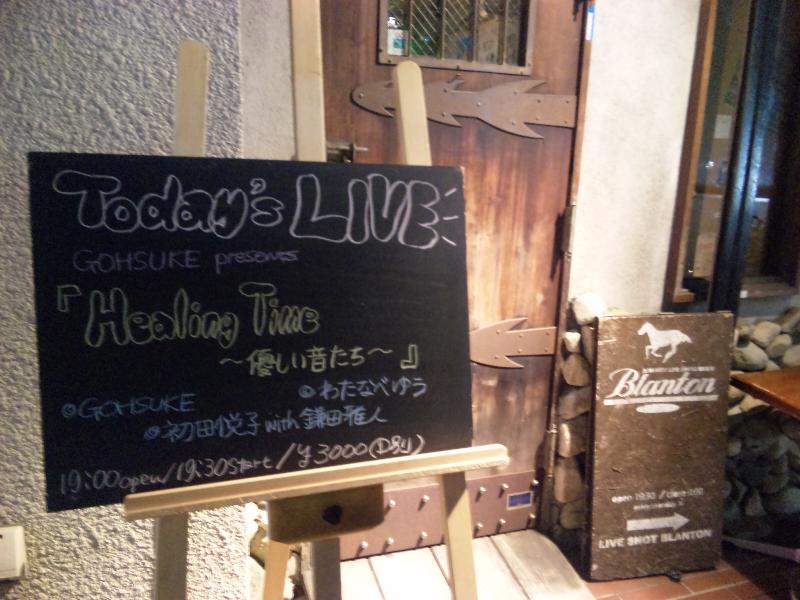 Today's LIVE
GOHSUKE presents
『Healing Time
～優しい音たち～』
◎GOHSUKE ◎わたなべゆう
◎初田悦子 with 鎌田雅人
19:00 open / 19:30 Start / ¥3000 (D別)
Blanton
open 19:30 / close
LIVE SHOT BLANTON